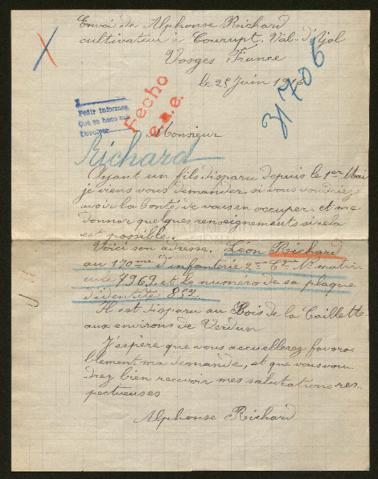 Envoi de Alphonse Richard
cultivateur à Courupt, Val-d'Ajol
Vosges France
le 25 Juin 1916
31706
Pedir informes
Fecho
c.a.e.
Monsieur
Richard
Ayant un fils disparu depuis le 1er Mai
je viens vous demander si vous voudriez
avoir la bonté de vous en occuper et me
donner quelques renseignements si cela
est possible.
Voici son adresse. Léon Richard
au 170me d'infanterie 2e Cie No matri-
cule 7969 et le numero de sa plaque
d'identité 857.
Il est disparu au Bois de la Caillette
aux environs de Verdun
J'espère que vous accuellerez favora-
blement ma demande, et que vous vou-
drez bien recevoir mes salutations res-
pectueuses
Alphonse Richard